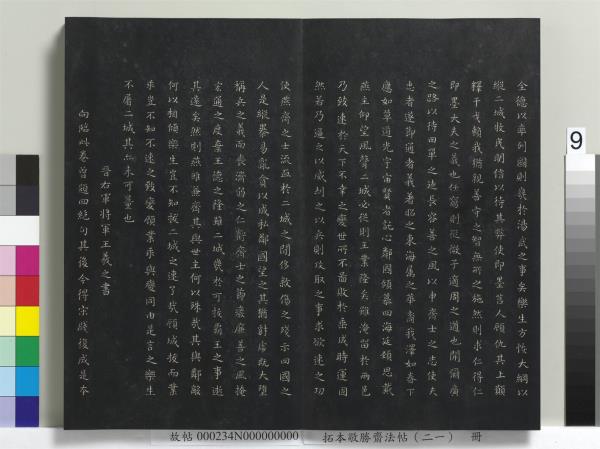 全德以率列國則幾於湯武之事矣樂生方恢大綱以
縱二城牧民明信以待其弊使即墨莒人顧仇其上願
釋干戈賴我猶親善守之智無所之施然則求仁得仁
即墨大夫之義也仕窮則從微子適周之道也開彌廣
之路以待田單之徒長容善之風以申齊士之志使夫
忠者遂節通者義著昭之東海屬之華裔我澤如春下
應如草道光宇宙賢者託心鄰國傾慕四海延頸思戴
燕主仰望風聲二城必從則王業隆矣雖淹留於兩邑
乃致速於天下不幸之變世所不圖敗於垂成時運固
然若乃逼之以威劫之以兵則攻取之事求欲速之功
使燕齊之士流血於二城之間侈殺傷之殘示四國之
人是縱暴易亂貪以成私鄰國望之其猶豺虎既大墮
稱兵之義而喪濟弱之仁虧齊士之節廢廉善之風掩
宏通之度棄王德之隆雖二城幾於可拔霸王之事逝
其遠矣然則燕雖兼齊其與世主何以殊哉其與鄰敵
何以相傾樂生豈不知拔二城之速了哉顧城拔而業
乖豈不知不速之致變顧業乖與變同由是言之樂生
不屠二城其亦未可量也
晉右軍將軍王羲之書
向臨此卷曾題四絕句其後今得宋牋復成是本
9
故帖 000234N000000000
拓本敬勝齋法帖（二一） 冊